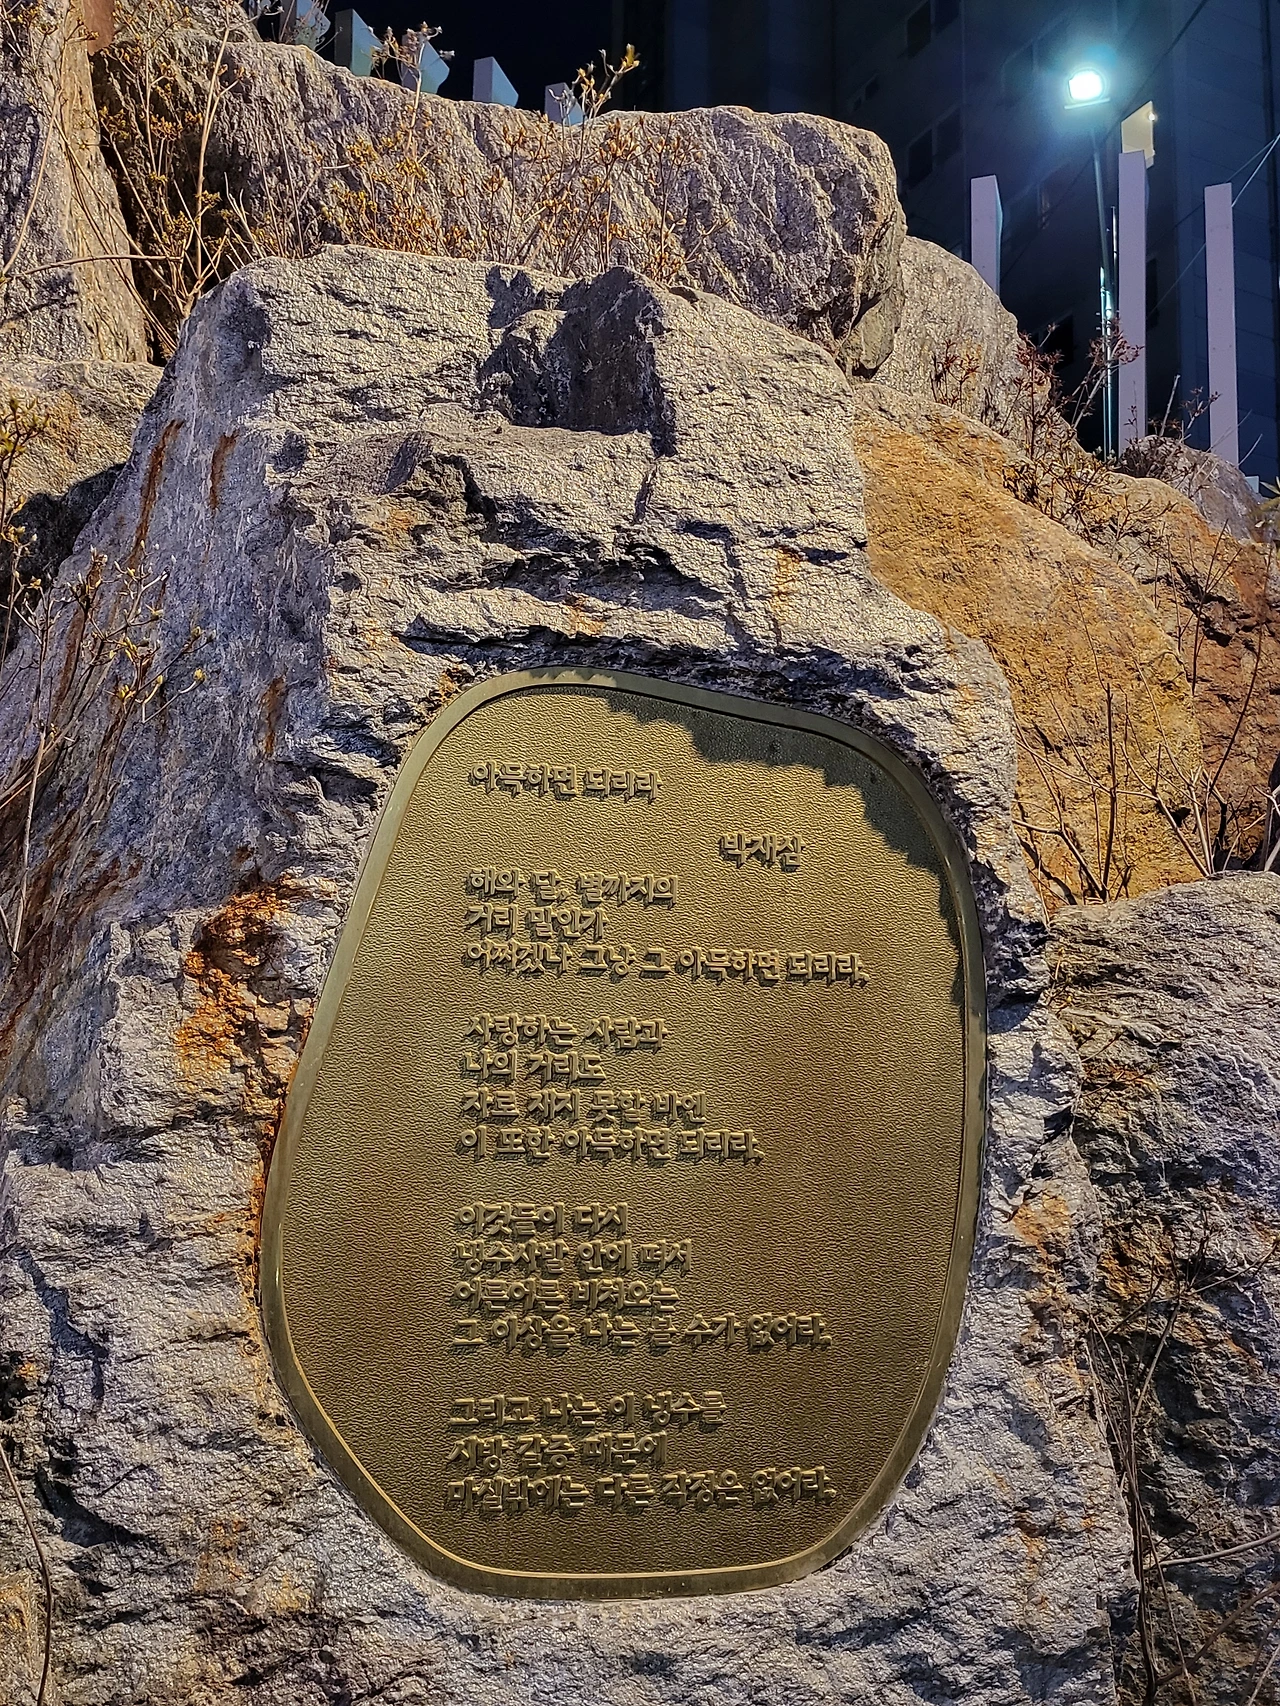 아득하면 되리라
박재삼
해와 달, 별까지의
거리 말인가
어쩌겠나 그냥 그 아득하면 되리라.
사랑하는 사람과
나의 거리도
자로 재지 못할 바엔
이 또한 아득하면 되리라.
이것들이 다시
냉수사발 안에 떠서
어른어른 비쳐오는
그 이상을 나는 볼 수가 없어라.
그리고 나는 이 냉수를
시방 갈증 때문에
마실밖에는 다른 작정은 없어라.